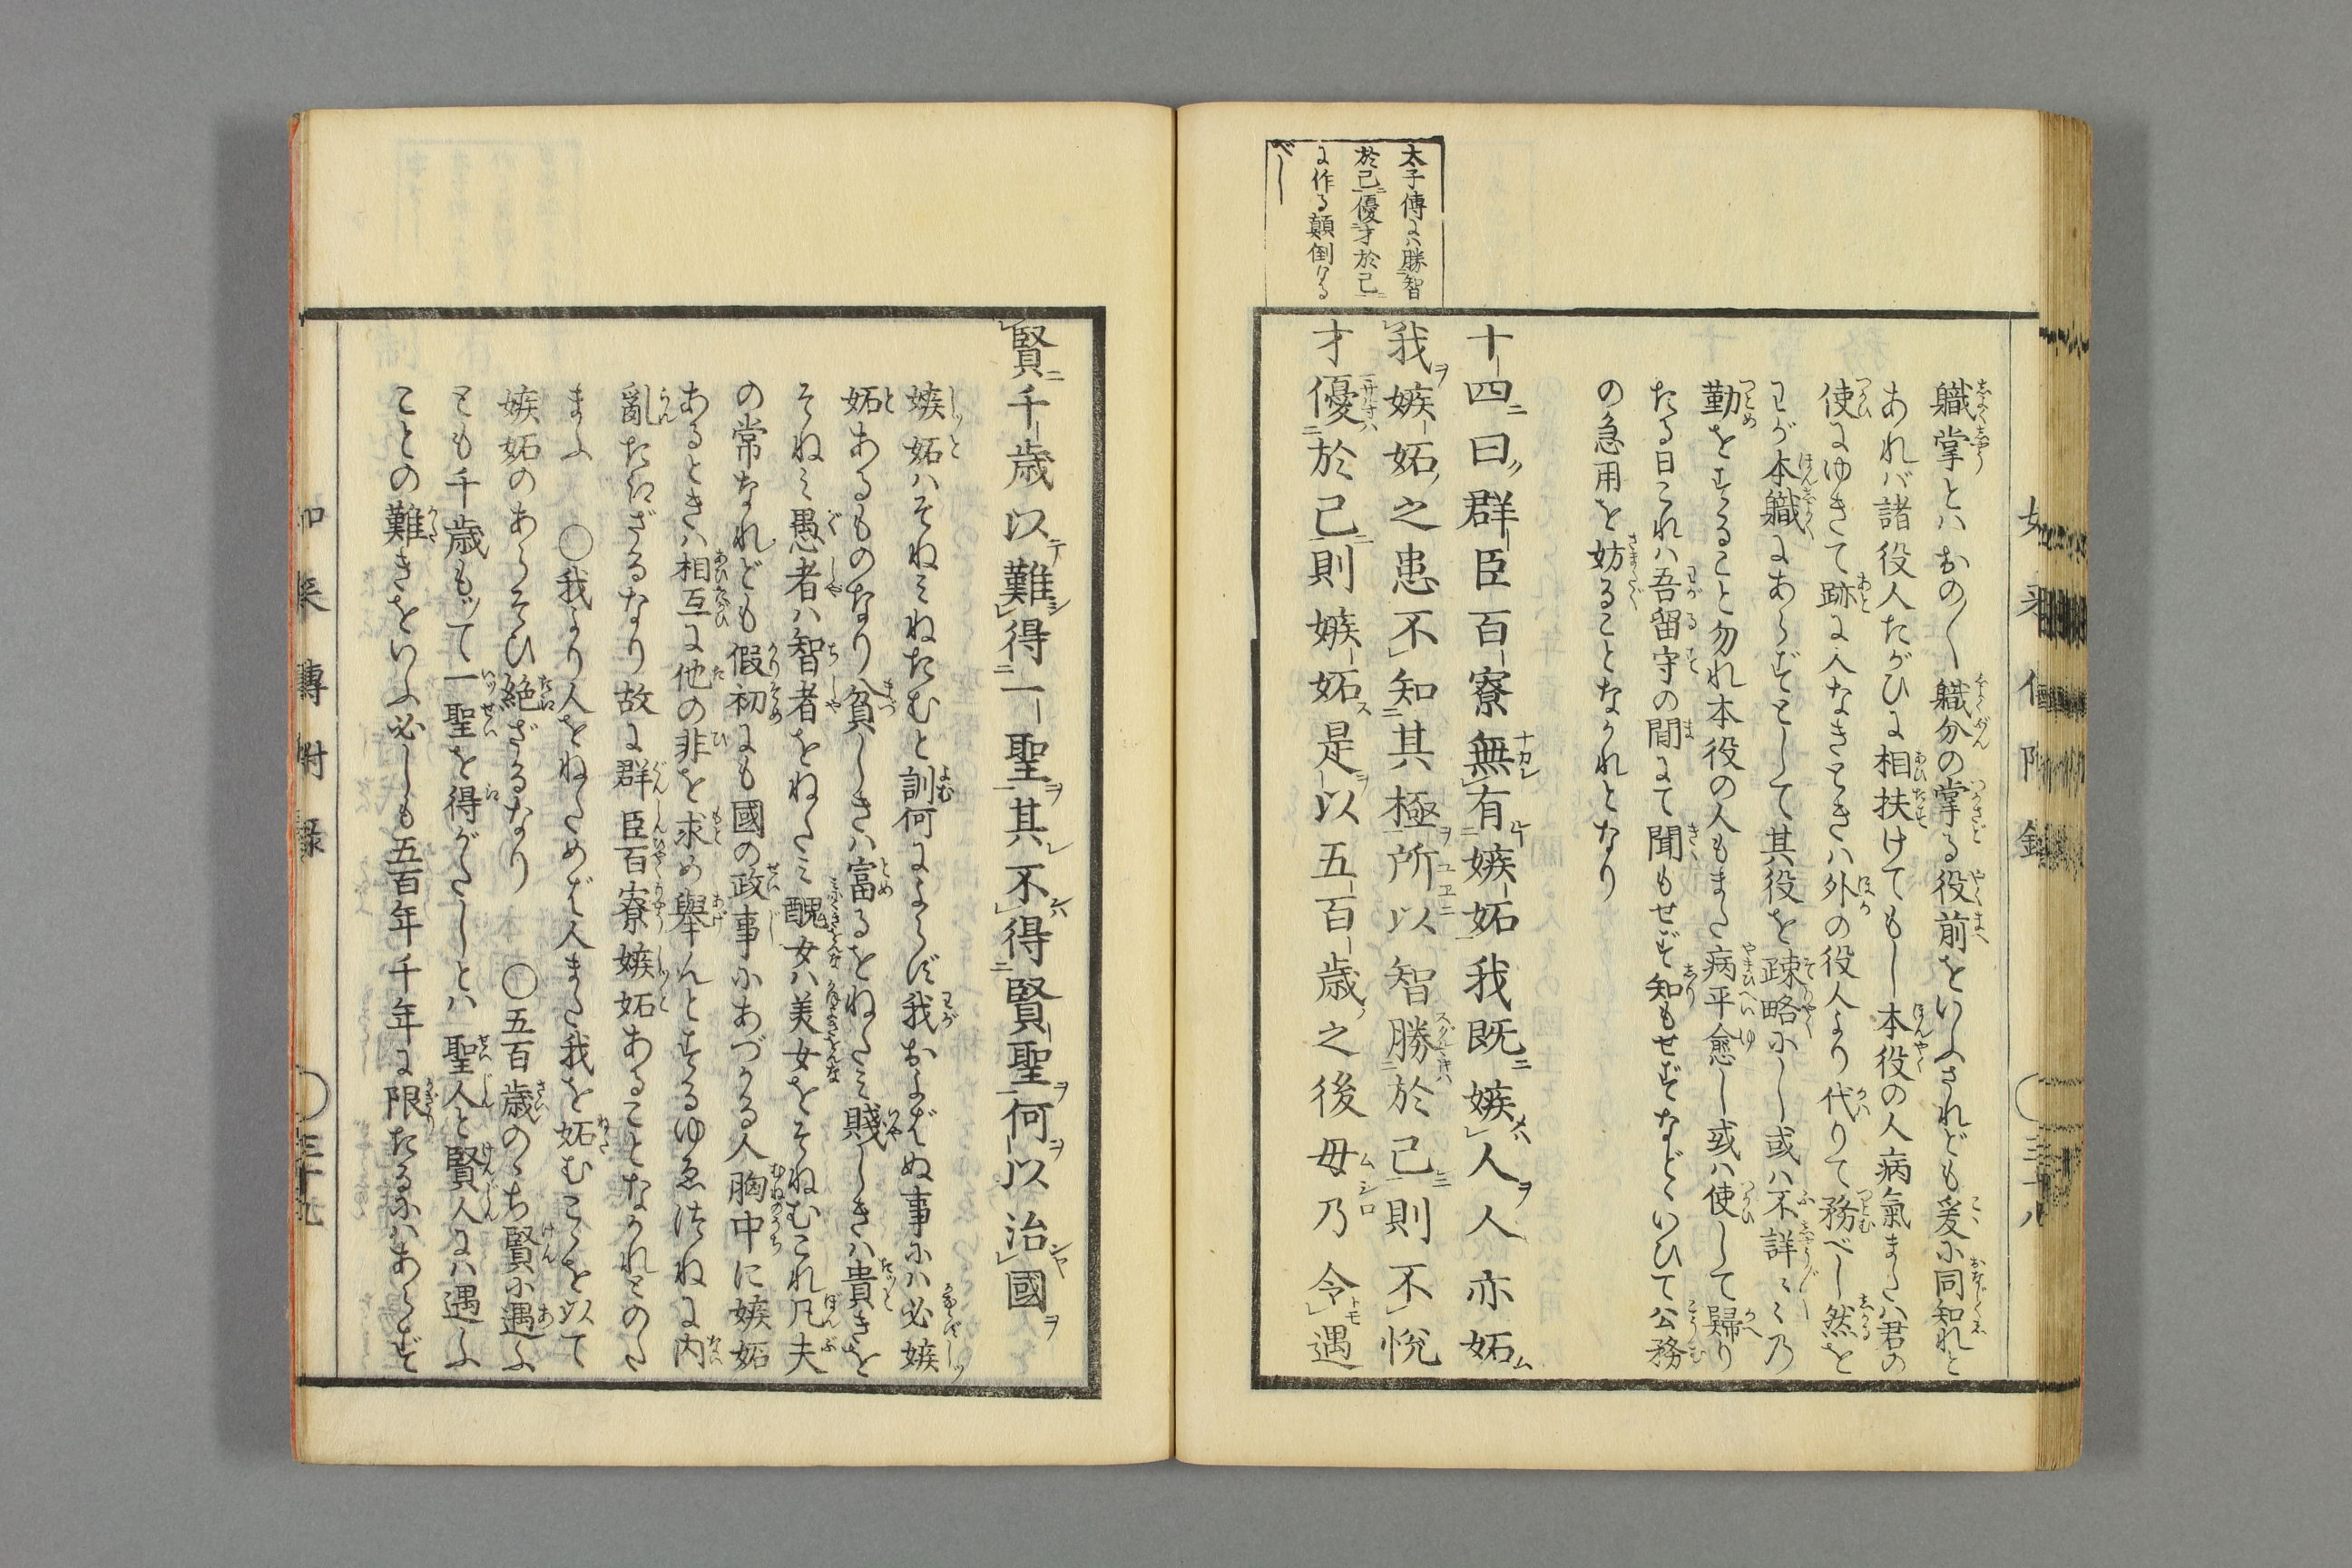 太子傳には勝智
於己優才於己
に作る顛倒ける
べし
職掌とはおの〳〵職分の掌る役前をいふされども爰に同知れと
あれバ諸役人たがひに相扶けてもし本役の人病氣または君の
使にゆきて跡に人なきときは外の役人より代りて務べし然を
わが本職にあらずとして其役を疎略にし或は不詳〻〻乃
勤をすること勿れ本役の人もまた病平愈し或は使して歸り
たる日これは吾留守の間にて聞もせず知もせずなどゝいひて公務
の急用を妨ることなかれとなり
十四曰群臣百寮無有嫉妬我既嫉人人亦妬
我嫉妬之患不知其極所以智勝於己則不悅
才優於己則嫉妬是以五百歳之後毋乃令遇
賢千歳以難得一聖其不得賢聖何以治國
嫉妬はそねみねたむと訓何によらず我およばぬ事には必嫉
妬あるものなり貧しきは富るをねたみ賤しきは貴きを
そねみ愚者は智者をねたみ醜女は美女をそねむこれ凡夫
の常なれども假初にも國の政事にあづかる人胸中に嫉妬
あるときは相互に他の非を求め舉んとするゆゑつねに内
亂たえざるなり故に群臣百寮嫉妬あることなかれとのた
まふ　〇我より人をねためば人また我を妬むこゝを以て
嫉妬のあらそひ絶ざるなり　〇五百歳のゝち賢に遇ふ
とも千歳もッて一聖を得がたしとは聖人と賢人には遇ふ
ことの難きをいふ必しも五百年千年に限たるにはあらず
如来傳附録　〇三十九